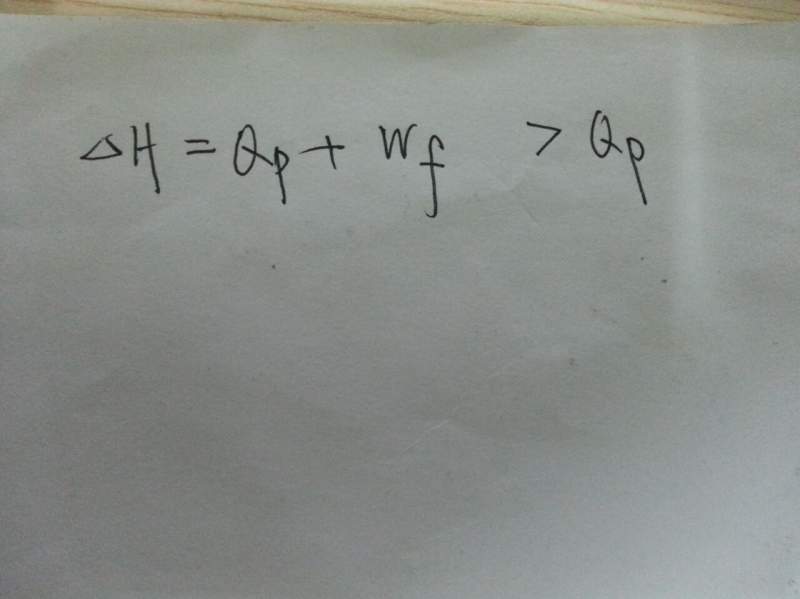 ΔH = Qp + Wf > Qp